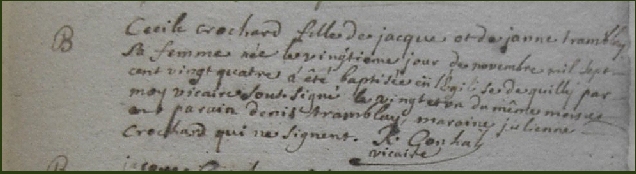 B
Cecile Crochard fille de jacque et de janne tramblay
sa femme née le vingtieme jour de novembre mil sept
cent vingt quatre a été baptisée en l'eglise de quilly par
moy vicaire soussigné le vingt et un du même mois
parain denis tramblay maraine julienne
Crochard qui ne signent. R. Gonhay
vicaire
B jacque